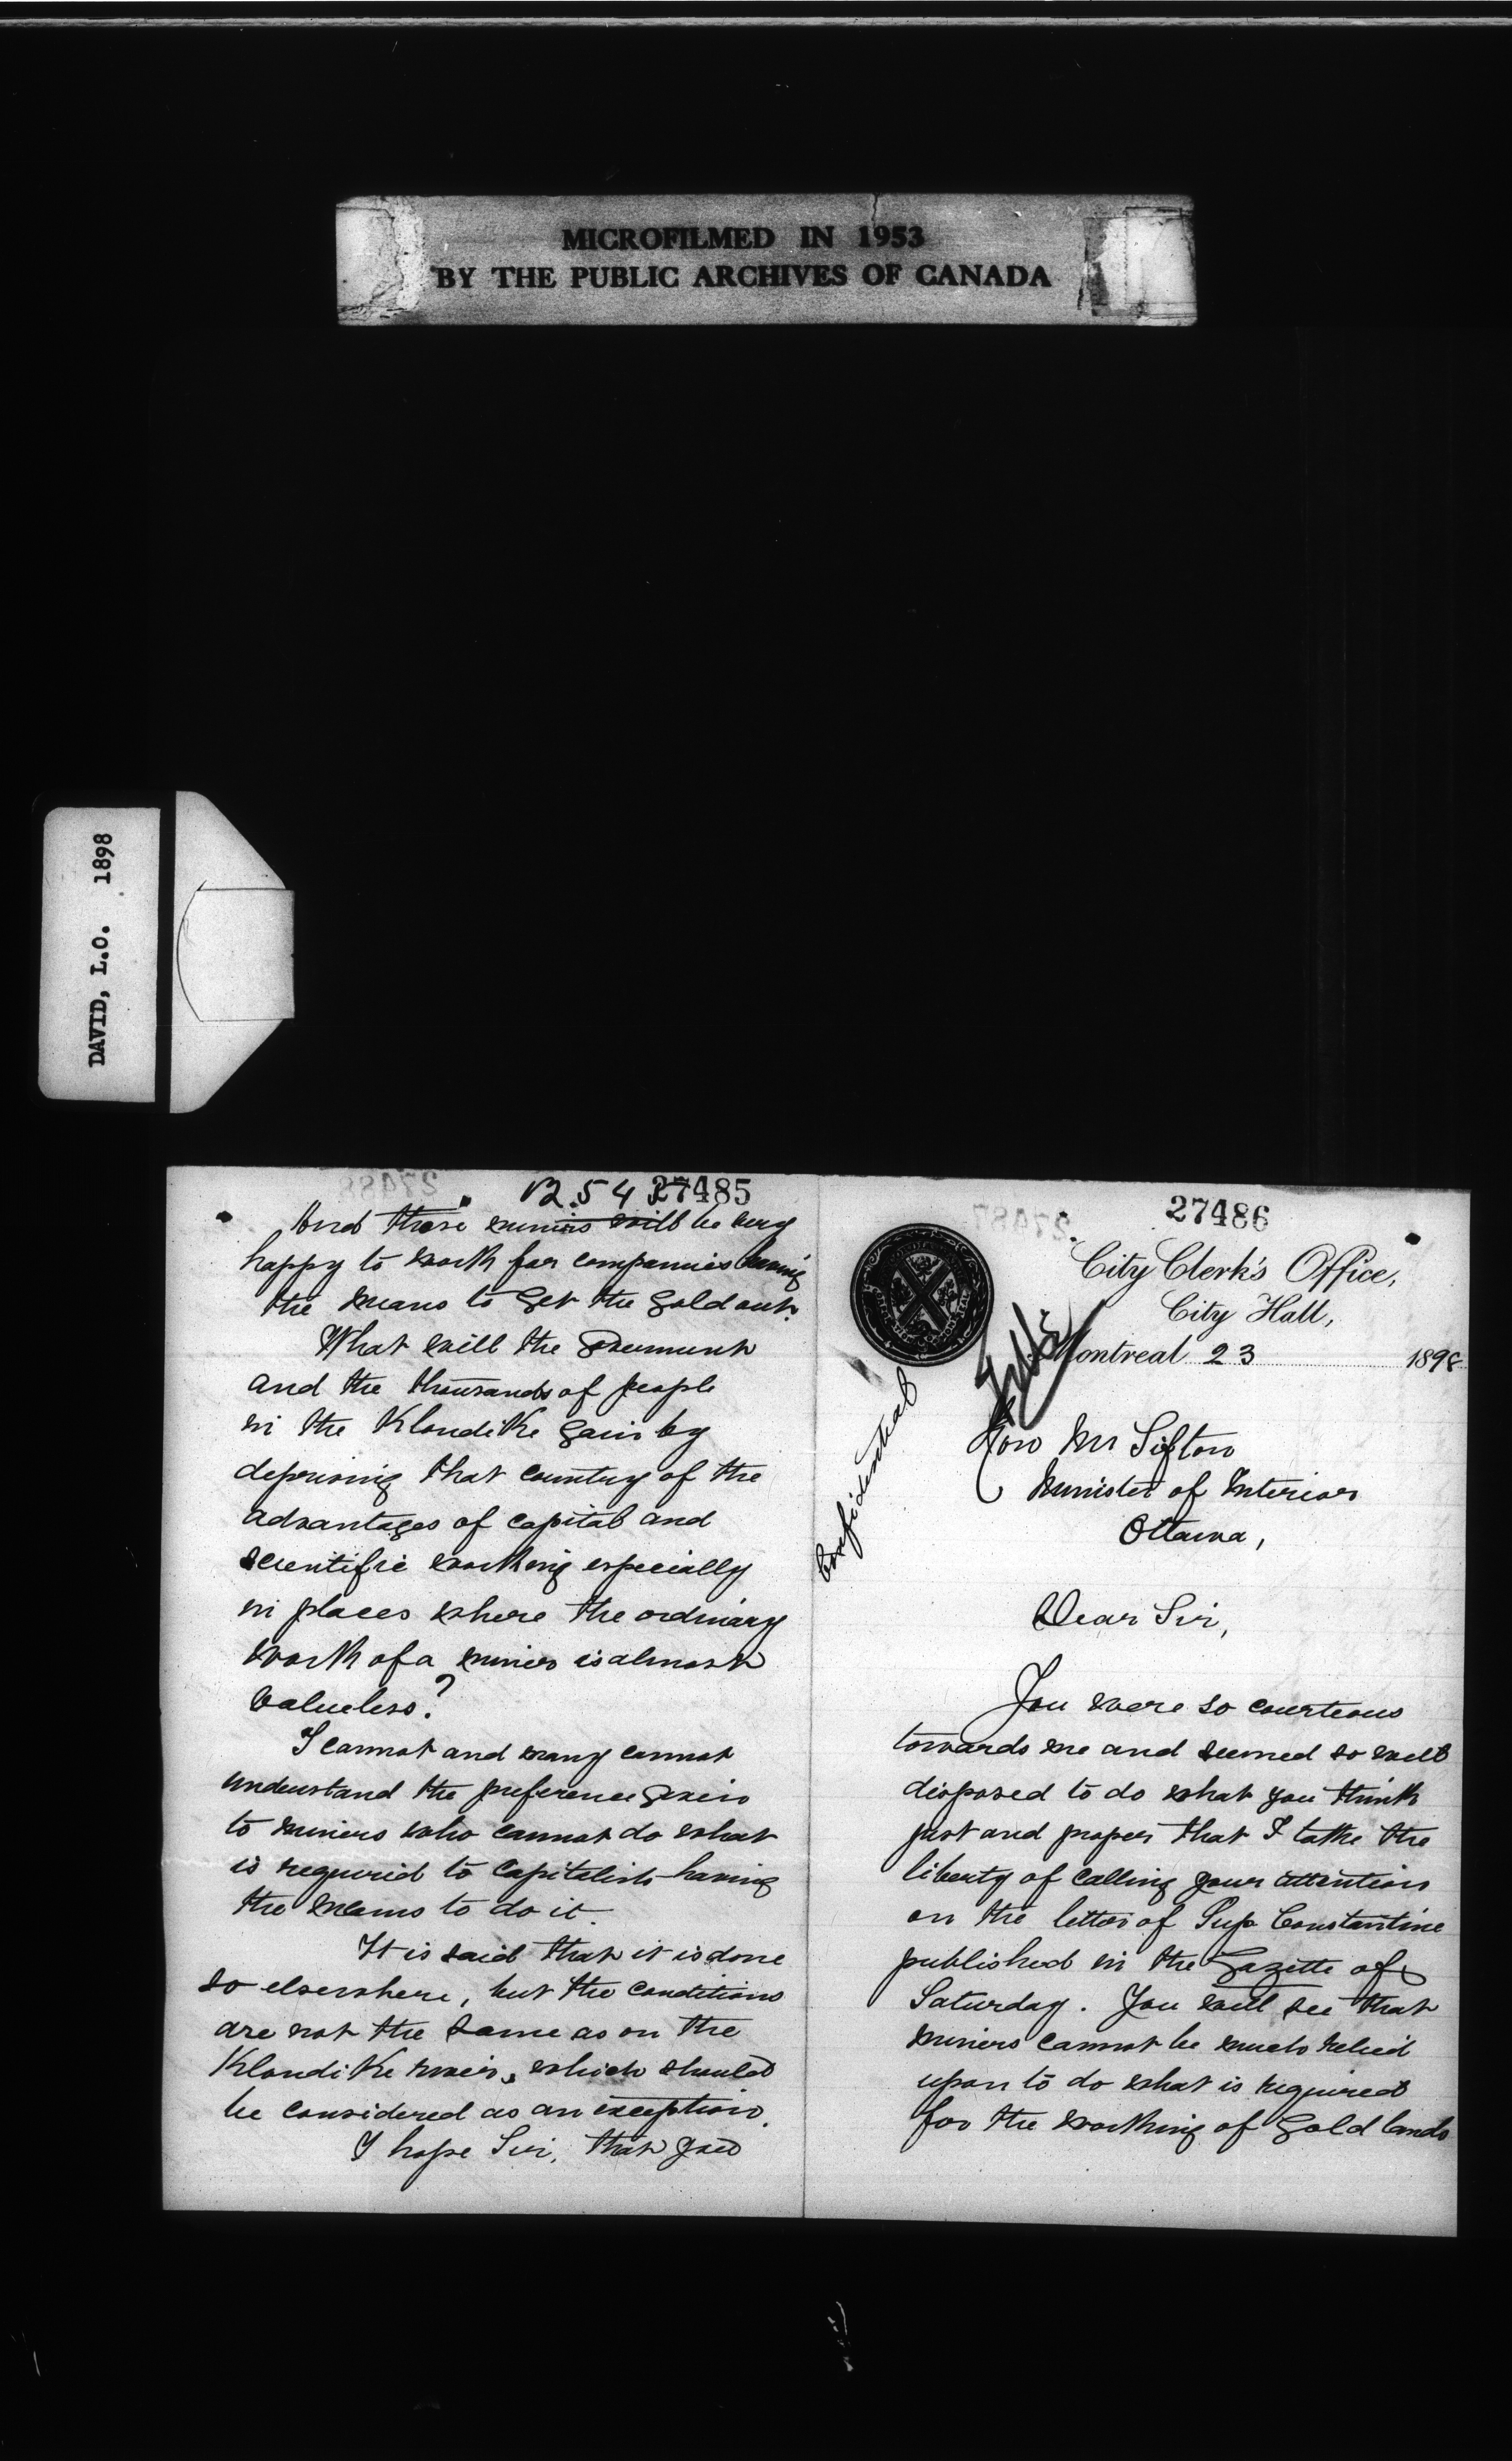 MICROFILMED IN 1953
BY THE PUBLIC ARCHIVES OF CANADA
DAVID, L.O. 1898
27485
And these miners will be very
happy to work for companies having
the means to get the gold out.
What will the Goverment
and the thousands of people
in the KlondiKe gain by
depriving that country of the
advantages of capital and
scientific working especially
in places where the ordinary
work of a miner is almost
valueless?
I cannot and many cannot
understand the preference given
to miners who cannot do what
is required to capitalists having
the means to do it.
It is said that it is done
so elsewhere, but the conditions
are not the same as on the
KlondiKe river, which should
be considered as an exception.
I hope Sir, that you
27486
City Clerk's Office,
City Hall,
Montreal 23 1898
Confidential
Hon Mr Sifton
Minister of Interior
Ottawa,
Dear Sir,
You were so courteous
towards me and seemed so well
disposed to do what you think
just and proper that I take the
liberty of calling your attention
on the letter of Sup Constantine
published in the Gazette of
Saturday. You will see that
miners cannot be much relied
upon to do what is required
for the working of gold lands